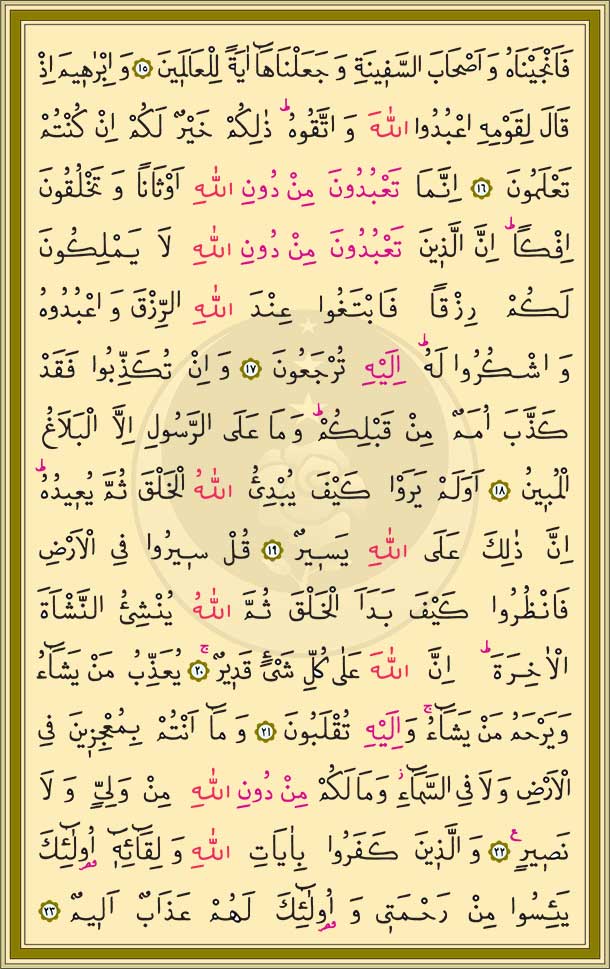 فَاَنْجَيْنَاهُ وَ اَصْحَابَ السَّف۪ينَةِ وَ جَعَلْنَاهَٓا اٰيَةً لِلْعَالَم۪ينَ ﴿١٥﴾ وَ اِبْرٰه۪يمَ اِذْ
قَالَ لِقَوْمِهِ اعْبُدُوا اللّٰهَ وَ اتَّقُوهُۜ ذٰلِكُمْ خَيْرٌ لَكُمْ اِنْ كُنْتُمْ
تَعْلَمُونَ ﴿١٦﴾ اِنَّمَا تَعْبُدُونَ مِنْ دُونِ اللّٰهِ اَوْثَانًا وَ تَخْلُقُونَ
اِفْكًاۜ اِنَّ الَّذ۪ينَ تَعْبُدُونَ مِنْ دُونِ اللّٰهِ لَا يَمْلِكُونَ
لَكُمْ رِزْقًا فَابْتَغُوا عِنْدَ اللّٰهِ الرِّزْقَ وَ اعْبُدُوهُ
وَ اشْكُرُوا لَهُۜ اِلَيْهِ تُرْجَعُونَ ﴿١٧﴾ وَ اِنْ تُكَذِّبُوا فَقَدْ
كَذَّبَ اُمَمٌ مِنْ قَبْلِكُمْۜ وَ مَا عَلَى الرَّسُولِ اِلَّا الْبَلَاغُ
الْمُب۪ينُ ﴿١٨﴾ اَوَلَمْ يَرَوْا كَيْفَ يُبْدِئُ اللّٰهُ الْخَلْقَ ثُمَّ يُع۪يدُهُۜ
اِنَّ ذٰلِكَ عَلَى اللّٰهِ يَس۪يرٌ ﴿١٩﴾ قُلْ س۪يرُوا فِي الْاَرْضِ
فَانْظُرُوا كَيْفَ بَدَاَ الْخَلْقَ ثُمَّ اللّٰهُ يُنْشِئُ النَّشْاَةَ
الْاٰخِرَةَۜ اِنَّ اللّٰهَ عَلٰى كُلِّ شَيْءٍ قَد۪يرٌۚ ﴿٢٠﴾ يُعَذِّبُ مَنْ يَشَٓاءُ
وَ يَرْحَمُ مَنْ يَشَٓاءُۚ وَ اِلَيْهِ تُقْلَبُونَ ﴿٢١﴾ وَ مَٓا اَنْتُمْ بِمُعْجِز۪ينَ فِي
الْاَرْضِ وَ لَا فِي السَّمَٓاءِۘ وَ مَا لَكُمْ مِنْ دُونِ اللّٰهِ مِنْ وَلِيٍّ وَ لَا
نَص۪يرٍ۟ ﴿٢٢﴾ وَ الَّذ۪ينَ كَفَرُوا بِاٰيَاتِ اللّٰهِ وَ لِقَٓائِه۪ٓ اُو۬لٰٓئِكَ
يَئِسُوا مِنْ رَحْمَت۪ي وَ اُو۬لٰٓئِكَ لَهُمْ عَذَابٌ اَل۪يمٌ ﴿٢٣﴾